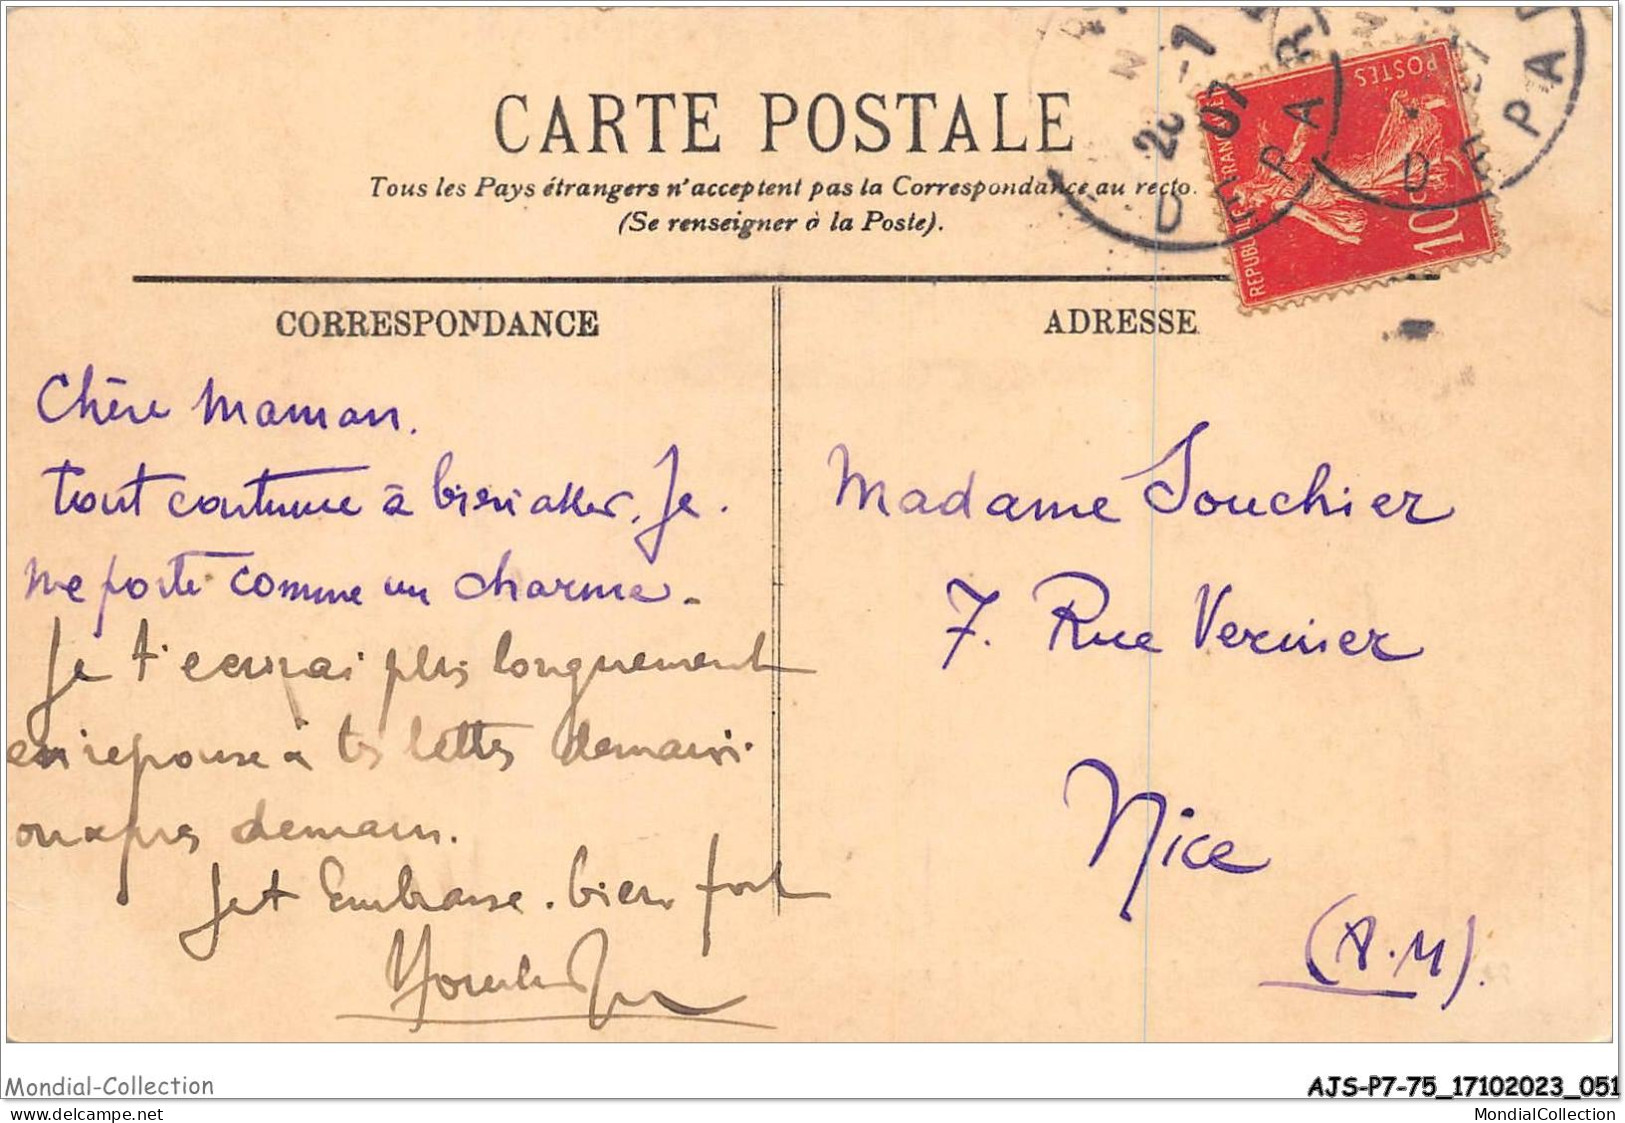 CARTE POSTALE
Tous les Pays étrangers n'acceptent pas la Correspondance au recto.
(Se renseigner à la Poste).
CORRESPONDANCE
Chère Maman.
tout continue à bien aller. Je.
me porte comme un charme.
Je t'ecrirai plus longuement
en reponse à tes lettres demain.
ou apres demain.
Je t Embrasse. bien fort
ADRESSE
Madame Souchier
7. Rue Vernier
Nice
(A.M).
POSTES
REPUBLIQUE FRANÇAISE
10c
PARIS
D
07
Mondial-Collection
AJS-P7-75_17102023_051
www.delcampe.net
MondialCollection